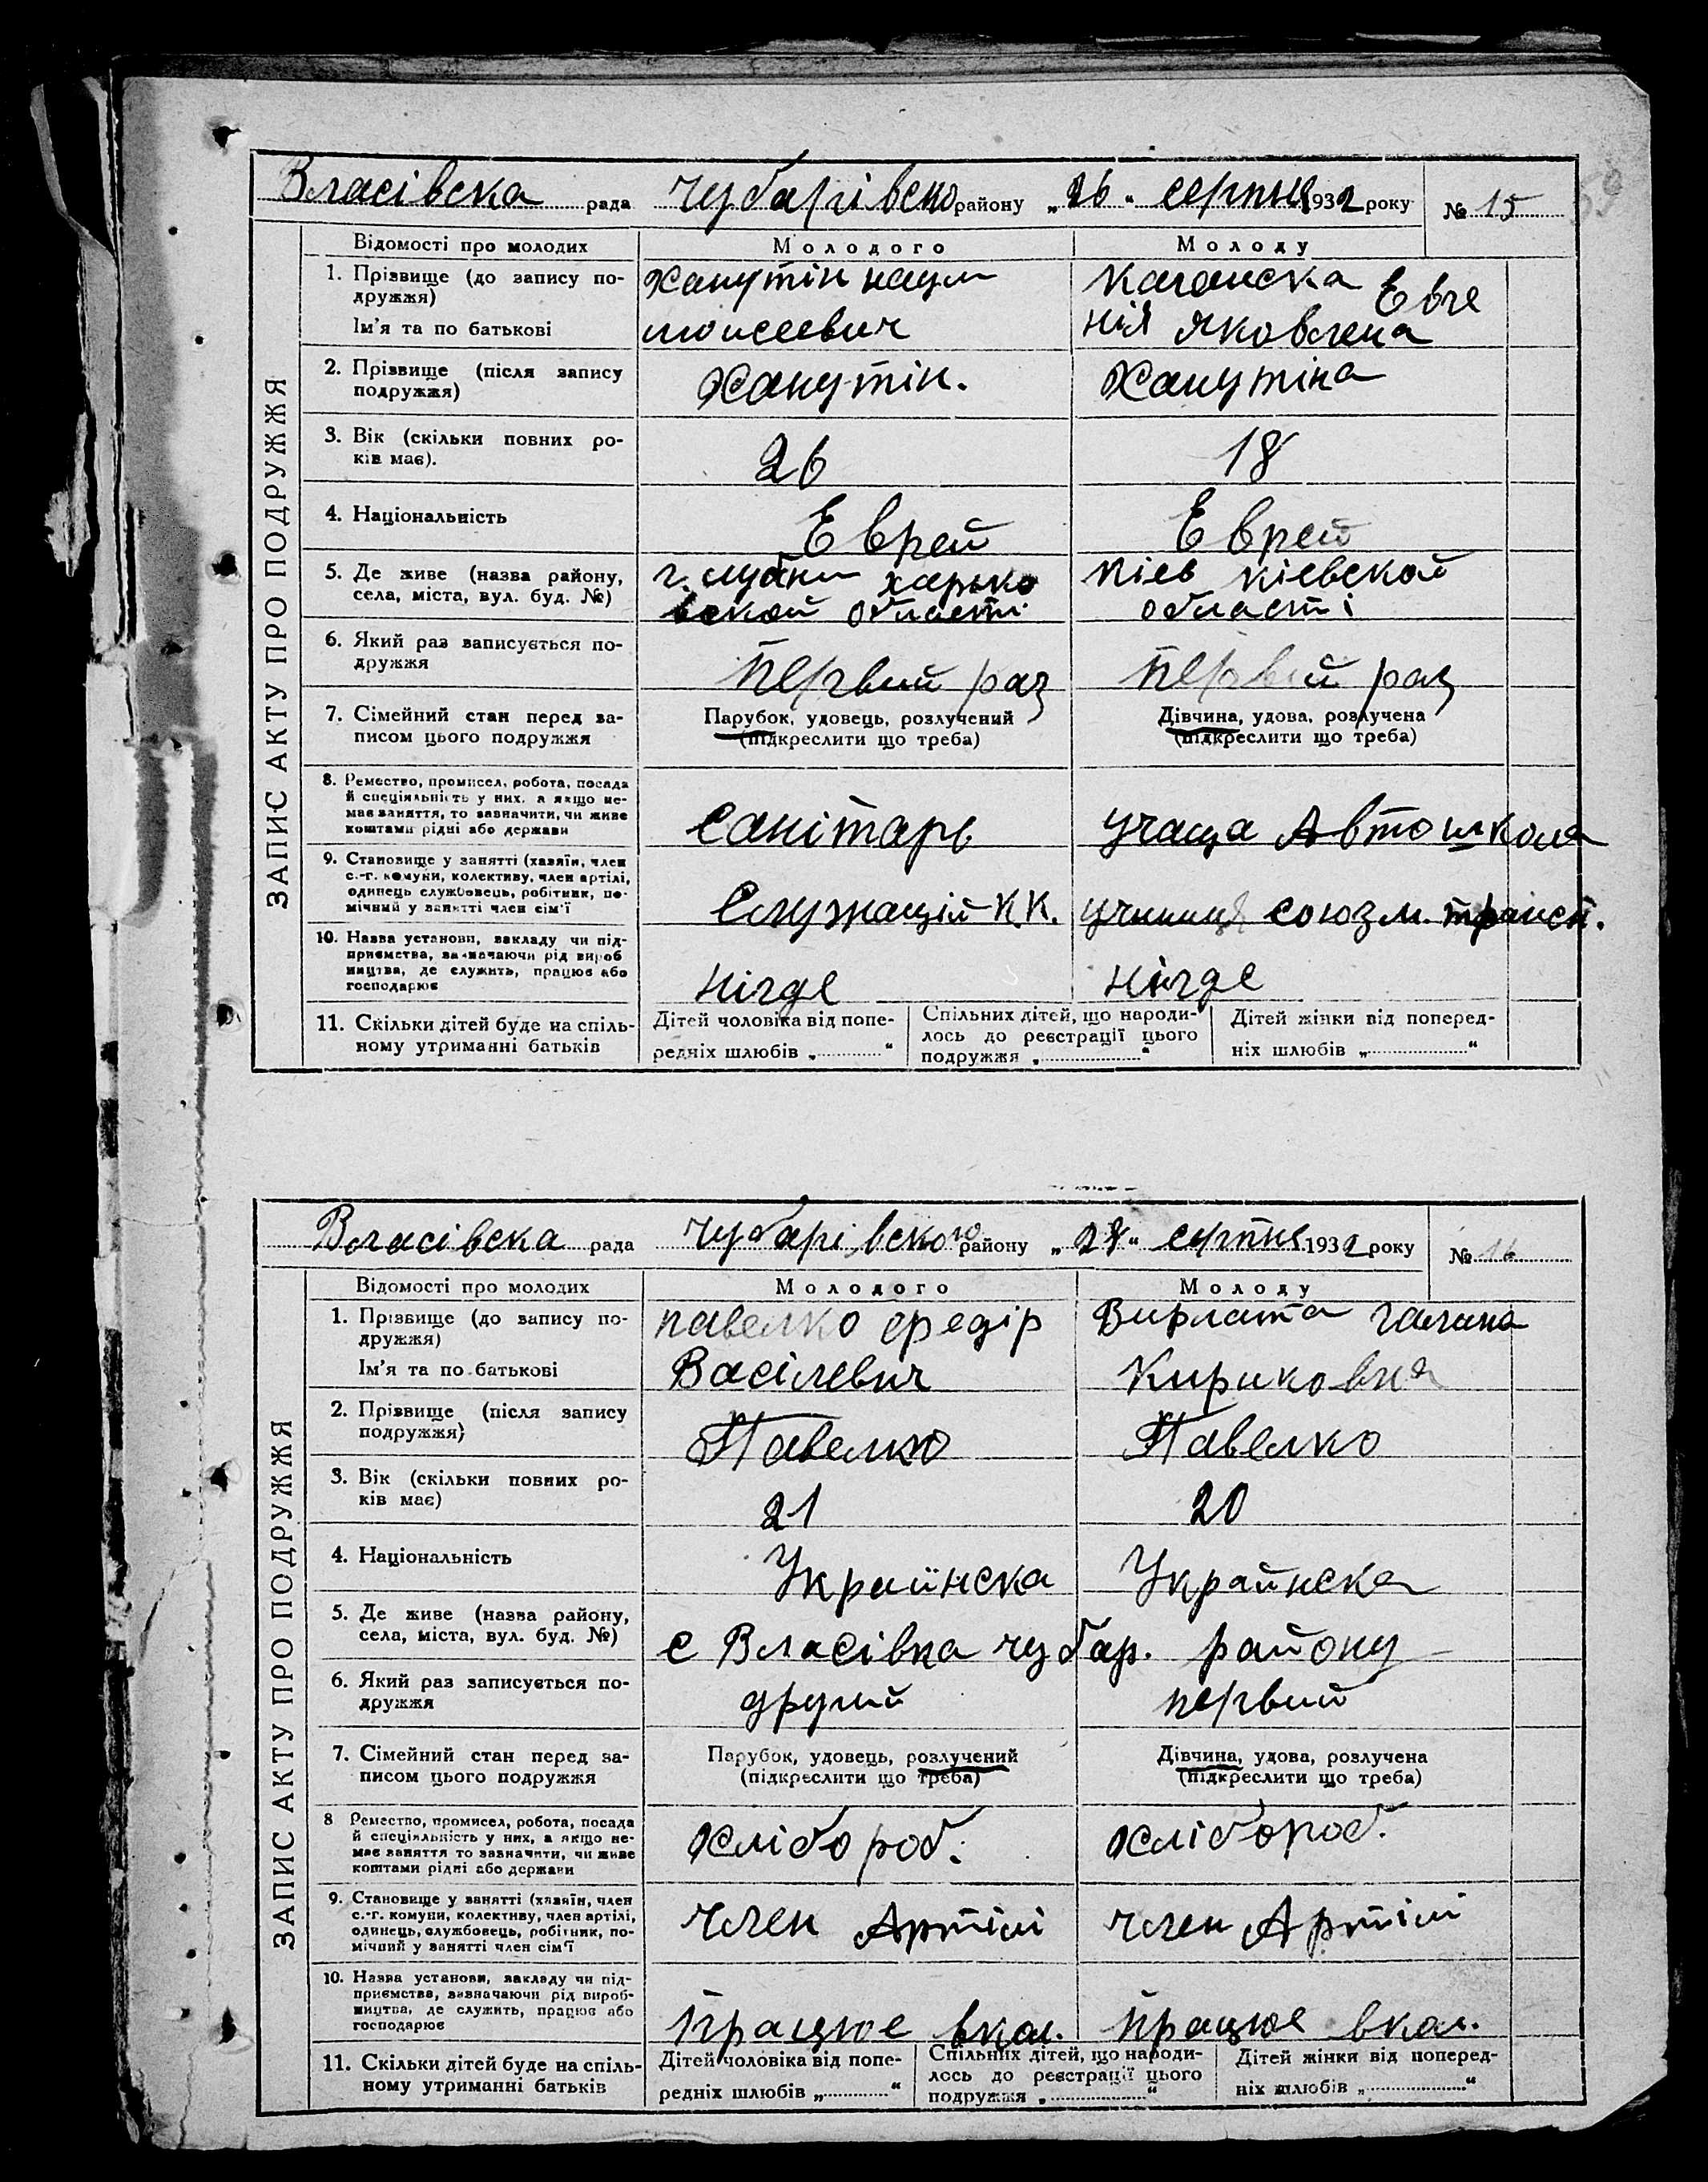 59
Власівска рада Чубарівско району „26“ серпня 1932 року № 15
ЗАПИС АКТУ ПРО ПОДРУЖЖЯ
Відомості про молодих Молодого Молоду
1. Прізвище (до запису по- Ханутін наум Каганска Евге
дружжя)
Ім'я та по батькові моисеевич нія Яковлена
2. Прізвище (після запису Ханутін. Ханутіна
подружжя)
3. Вік (скільки повних ро- 26 18
ків має).
4. Національність Еврей Еврей
5. Де живе (назва району, г. лубни харько Кіев Кіевской
села, міста, вул. буд. №) вской области области
6. Який раз записується по- Первий раз Первий раз
дружжя
7. Сімейний стан перед за- Парубок, удовець, розлучений Дівчина, удова, розлучена
писом цього подружжя (підкреслити що треба) (підкреслити що треба)
8. Ремество, промисел, робота, посада
й спеціяльність у них, а якщо не-
має заняття, то зазначити, чи живе Санітарь учаща Автошкола
коштами рідні або держави
9. Становище у занятті (хазяїн, член
с.-г. комуни, колективу, член артілі,
одинець службовець, робітник, по- Служащій КК. учиниця союзм. трансп.
мічний у занятті член сім'ї
10. Назва установи, закладу чи під-
приємства, зазначаючи рід вироб
ництва, де служить, працює або нігде нігде
господарює
11. Скільки дітей буде на спіль- Дітей чоловіка від попе- Спільних дітей, що народи- Дітей жінки від поперед-
ному утриманні батьків редніх шлюбів „ “ лось до реєстрації цього ніх шлюбів „ “
подружжя „ “
Власівска рада Чубарівского району „28“ серпня 1932 року № 16
ЗАПИС АКТУ ПРО ПОДРУЖЖЯ
Відомості про молодих Молодого Молоду
1. Прізвище (до запису по- Павелко Федір Вирлата Галина
дружжя)
Ім'я та по батькові Васілевич Кириковня
2. Прізвище (після запису Павелко Павелко
подружжя)
3. Вік (скільки повних ро- 21 20
ків має)
4. Національність Украйнска Украйнска
5. Де живе (назва району,
села, міста, вул. буд. №) с Власівка чубар. району
6. Який раз записується по- другий первий
дружжя
7. Сімейний стан перед за- Парубок, удовець, розлучений Дівчина, удова, розлучена
писом цього подружжя (підкреслити що треба) (підкреслити що треба)
8 Ремество, промисел, робота, посада
й спеціяльність у них, а якщо не- Хлібороб. Хлібороб.
має заняття то зазначити, чи живе
коштами рідні або держави
9. Становище у занятті (хазяїн, член
с.-г. комуни, колективу, член артілі, член Артілі член Артілі
одинець, службовець, робітник, по-
мічний у занятті член сім'ї
10. Назва установи, закладу чи під-
приємства, зазначаючи рід вироб-
ництва, де служить, працює або Працює вкол. Працює вкол.
господарює
11. Скільки дітей буде на спіль- Дітей чоловіка від попе- Спільних дітей, що народи- Дітей жінки від поперед-
ному утриманні батьків редніх шлюбів „ “ лось до реєстрації цього ніх шлюбів „ “
подружжя „ “